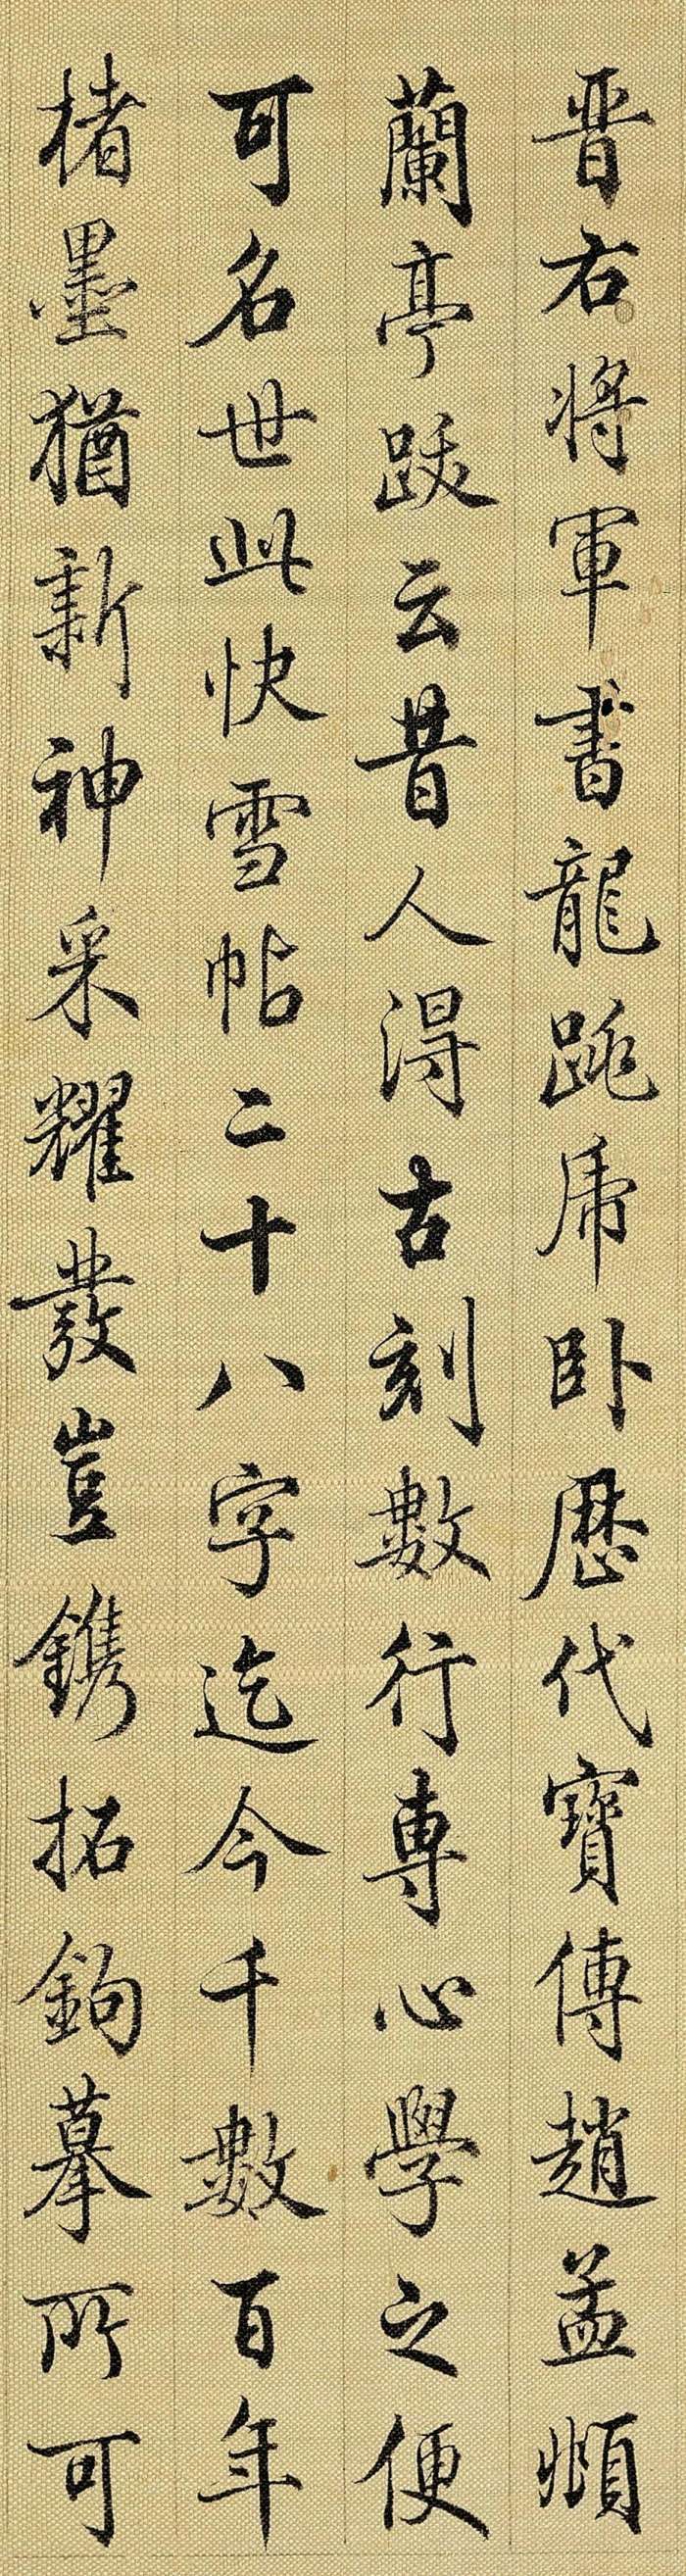 晋右將軍書龍跳虎卧歴代寶傳趙孟頫
蘭亭跋云昔人得古刻數行専心學之便
可名世此快雪帖二十八字迄今千數百年
楮墨猶新神采耀發豈鐫拓鉤摹所可